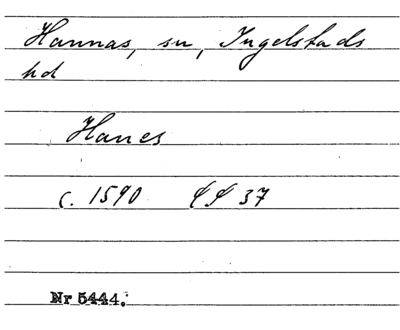 Hannas, sn, Ingelstads
hd
Hanes
c. 1590 37
Nr 5444.